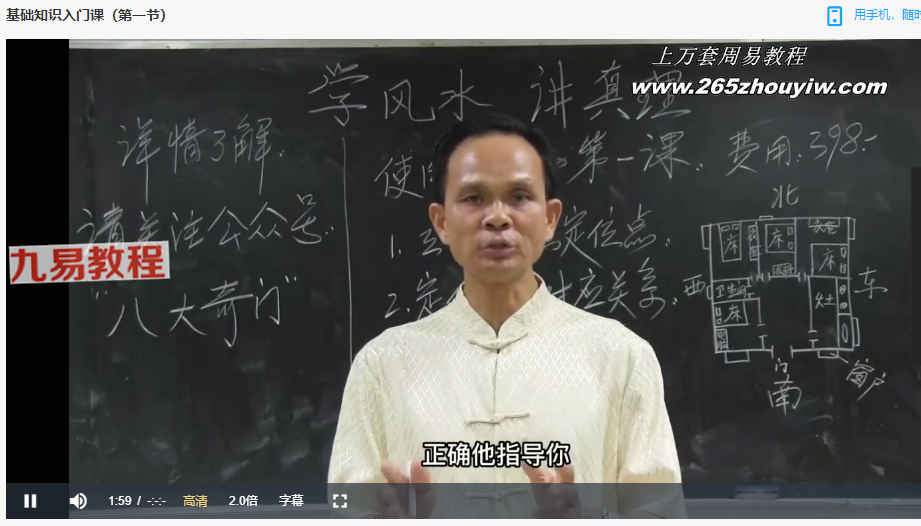 基础知识入门课（第一节）
用手机，随时
上万套周易教程
www.265zhouyiw.com
学风水 讲真理
详情了解：
请关注公众号：
九易教程
"八大奇门"
第一课：费用：398:-
定位点：
对应关系：
北
床
床
床
西
卫生间
灶
东
床
门
窗户
南
正确他指导你
1:59 / -:-:-
高清
2.0倍
字幕